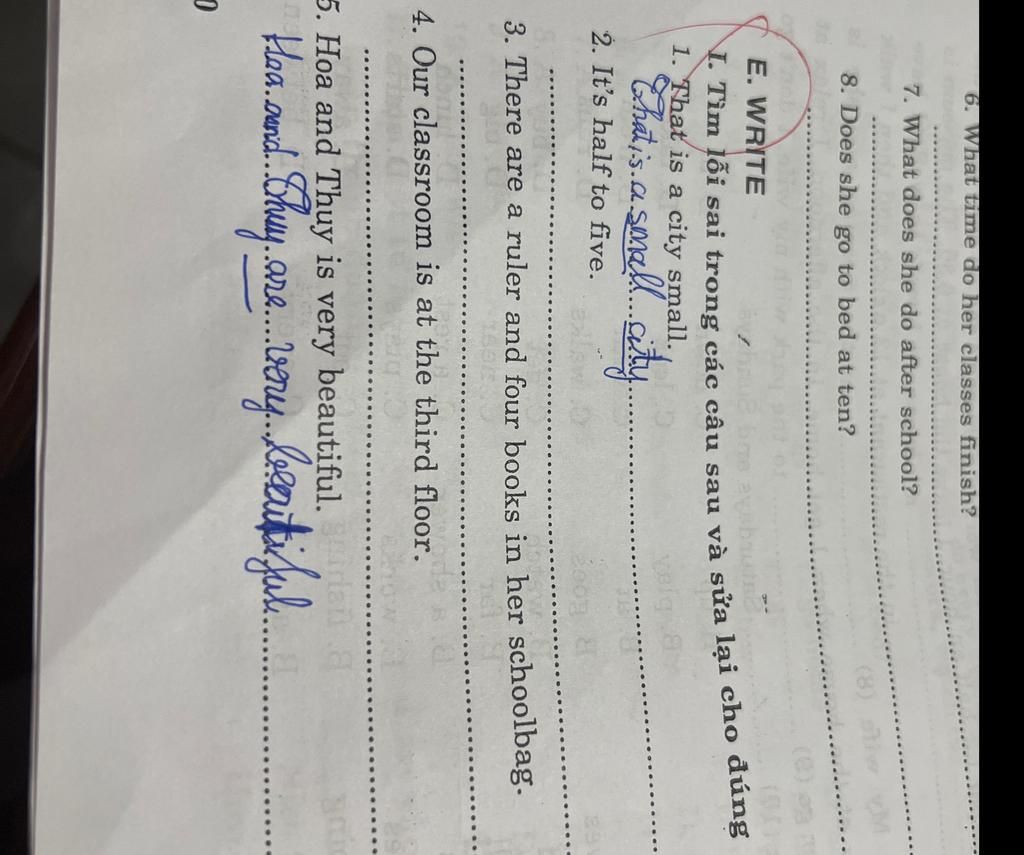 6. What time do her classes finish?
7. What does she do after school?
8. Does she go to bed at ten?
E. WRITE
I. Tìm lỗi sai trong các câu sau và sửa lại cho đúng
1. That is a city small.
That is a small city
2. It's half to five.
3. There are a ruler and four books in her schoolbag.
4. Our classroom is at the third floor.
5. Hoa and Thuy is very beautiful.
Hoa and Thuy are very beautiful
0